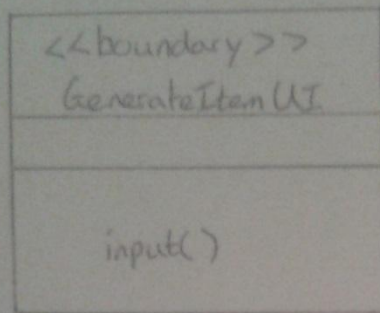 <<boundary>>
GenerateItemUI
input()